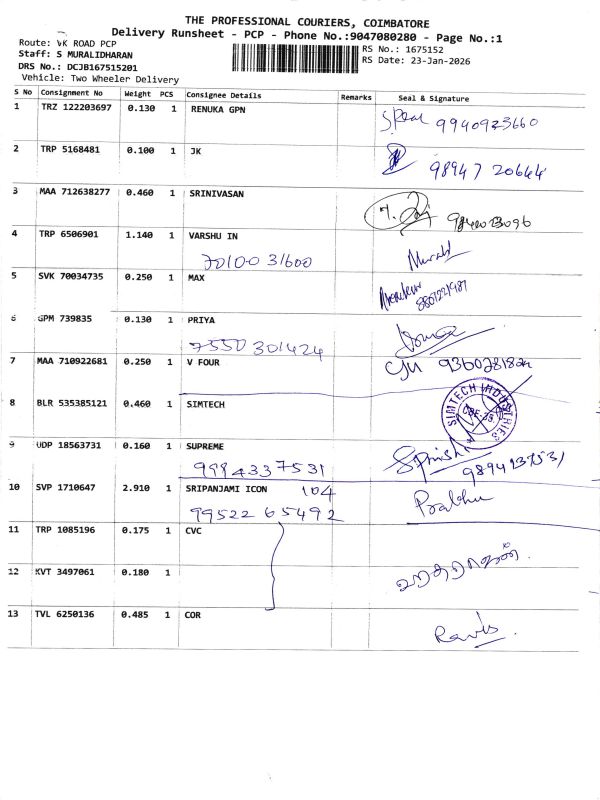 THE PROFESSIONAL COURIERS, COIMBATORE
Delivery Runsheet - PCP - Phone No.:9047080280 - Page No.:1
Route: VK ROAD PCP
Staff: S MURALIDHARAN
DRS No.: DCJB167515201
Vehicle: Two Wheeler Delivery
RS No.: 1675152
RS Date: 23-Jan-2026
S No Consignment No Weight PCS Consignee Details Remarks Seal & Signature
1 TRZ 122203697 0.130 1 RENUKA GPN 9940923660
2 TRP 5168481 0.100 1 JK 98947 20644
3 MAA 712638277 0.460 1 SRINIVASAN
4 TRP 6506901 1.140 1 VARSHU IN
70100 31600
5 SVK 70034735 0.250 1 MAX
6 GPM 739835 0.130 1 PRIYA
7550 301424
7 MAA 710922681 0.250 1 V FOUR
8 BLR 535385121 0.460 1 SIMTECH SIMTECH INDUSTRIES
9 UDP 18563731 0.160 1 SUPREME
9994337531
10 SVP 1710647 2.910 1 SRIPANJAMI ICON 104 Prabhu
99522 65492
11 TRP 1085196 0.175 1 CVC
12 KVT 3497061 0.180 1
13 TVL 6250136 0.485 1 COR